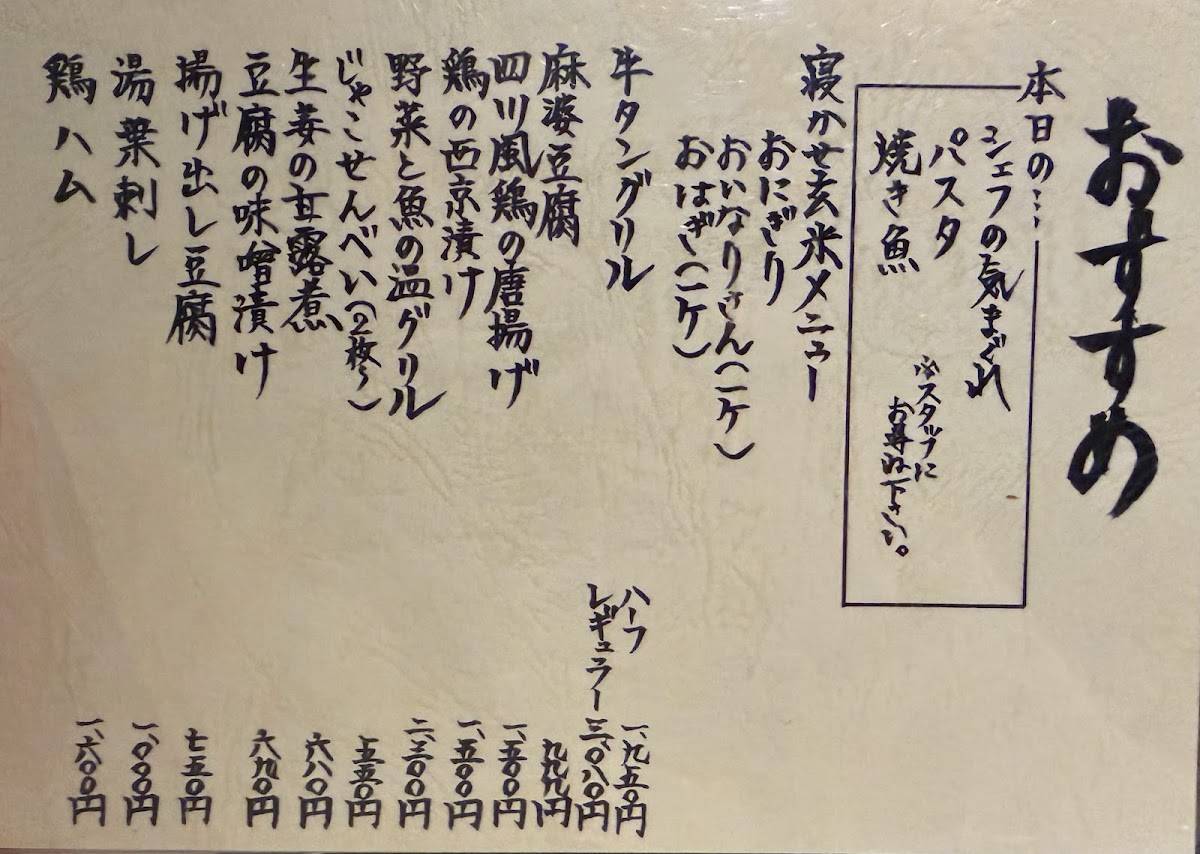 おすすめ
本日の…
シェフの気まぐれ
パスタ
焼き魚
※スタッフに
お尋ね下さい。
寝かせ玄米メニュー
おにぎり
おいなりさん(一ケ)
おはぎ(一ケ)
牛タングリル ハーフ 一、九五〇円
レギュラー 三、〇八〇円
麻婆豆腐 九九九円
四川風鶏の唐揚げ 一、五〇〇円
鶏の西京漬け 一、五〇〇円
野菜と魚の温グリル 二、三〇〇円
じゃこせんべい(2枚〜) 五五〇円
生姜の甘露煮 六八〇円
豆腐の味噌漬け 六九〇円
揚げ出し豆腐 七五〇円
湯葉刺し 一、〇〇〇円
鶏ハム 一、六〇〇円